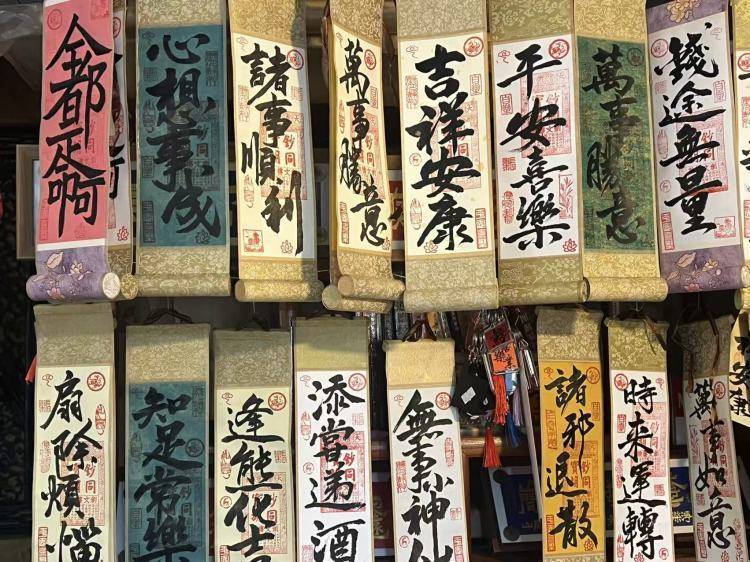 全都正啊
心想事成
諸事順利
萬事勝意
吉祥安康
平安喜樂
萬事勝意
錢途無量
扇除煩惱
知足常樂
逢熊化吉
添當遞酒
無事小神仙
諸邪退散
時来運轉
萬事如意